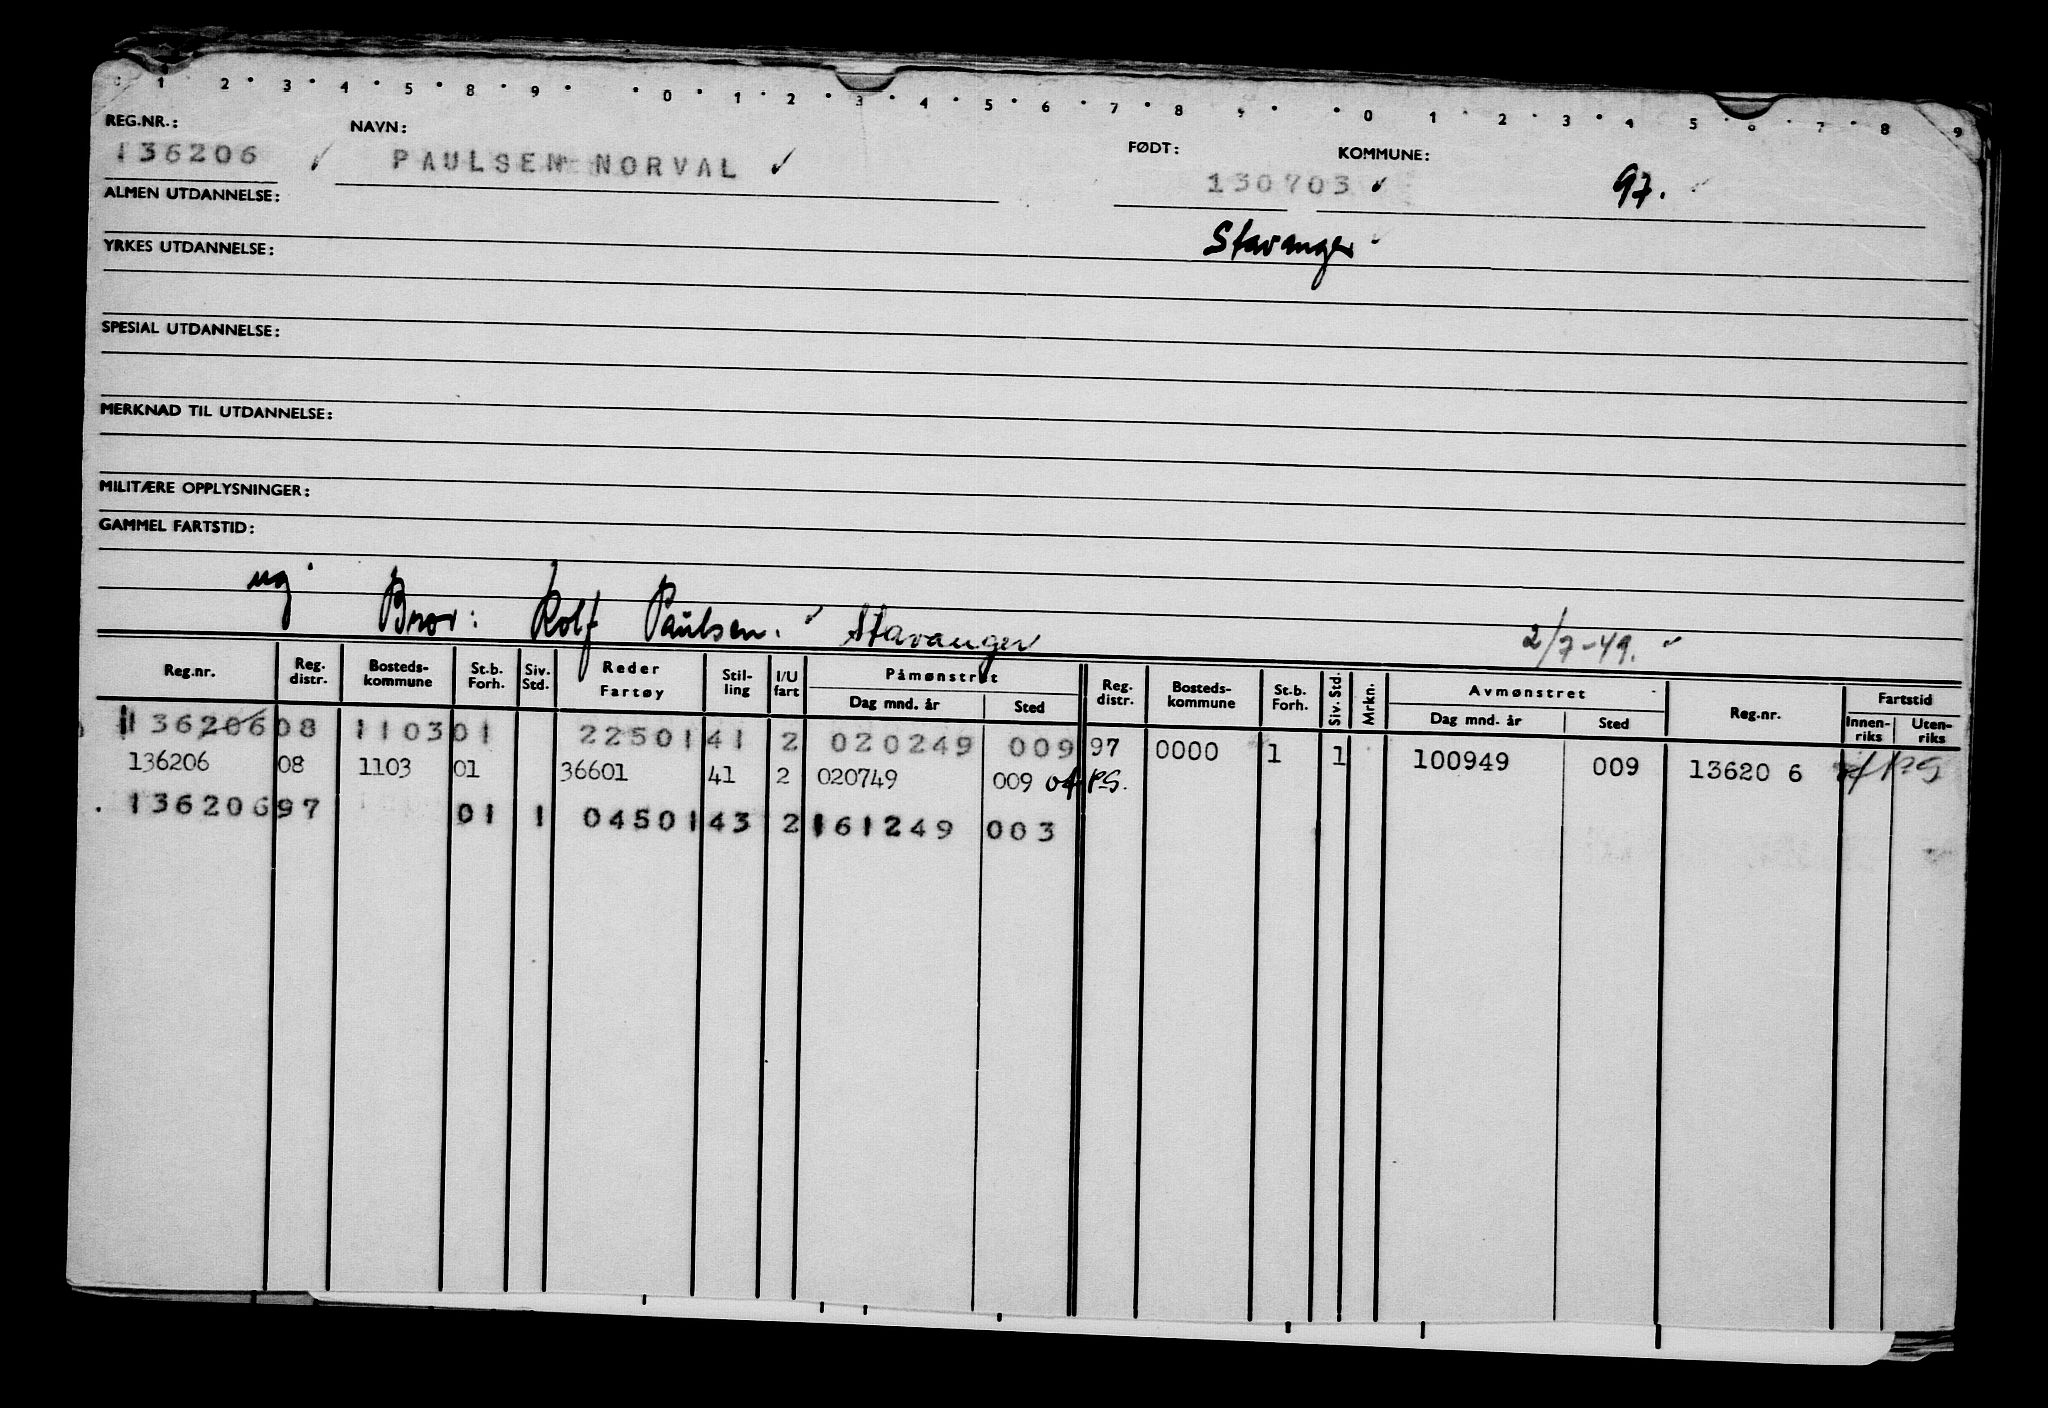 1 2 3 4 5 8 9 0 1 2 3 4 5 6 7 8 9 0 1 2 3 4 5 6 7 8 9
REG.NR.: NAVN: FØDT: KOMMUNE:
136206 ✓ PAULSEN NORVAL ✓ 130703 ✓ 97.
ALMEN UTDANNELSE:
Stavanger
YRKES UTDANNELSE:
SPESIAL UTDANNELSE:
MERKNAD TIL UTDANNELSE:
MILITÆRE OPPLYSNINGER:
GAMMEL FARTSTID:
ug Bror: Rolf Paulsen. Stavanger 2/7-49.
Reg.nr. Reg. distr. Bosteds-kommune St.b. Forh. Siv. Std. Reder Fartøy Stil-ling I/U fart Påmønstret Dag mnd. år Sted Reg. distr. Bosteds-kommune St.b. Forh. Siv. Std. Mrkn. Avmønstret Dag mnd. år Sted Reg.nr. Fartstid Innen-riks Uten-riks
136206 08 1103 01 22501 41 2 020249 009 97 0000 1 1 100949 009 13620 6
136206 08 1103 01 36601 41 2 020749 009
136206 97 01 1 04501 43 2 161249 003